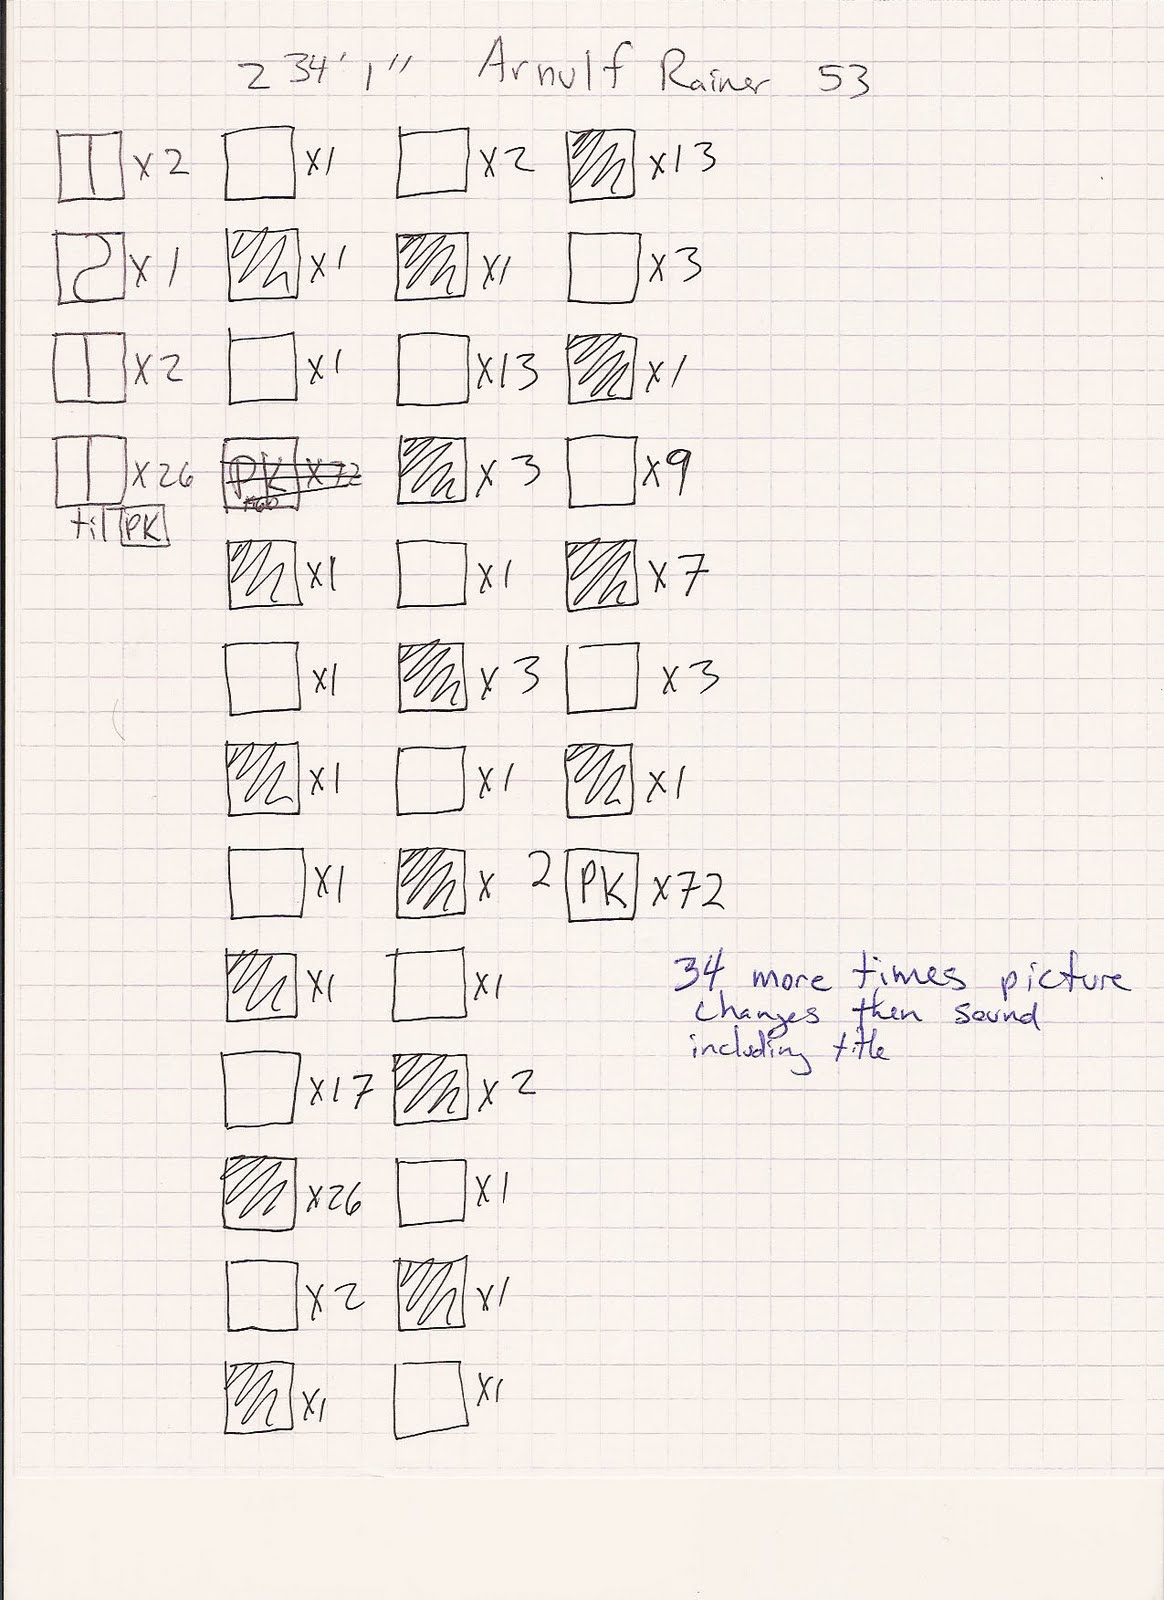 2 34' 1" Arnulf Rainer 53
1 x2 x1 x2 x13
2 x1 x1 x1 x3
1 x2 x1 x13 x1
1 x26 PK x72 x3 x9
til PK
x1 x1 x7
x1 x3 x3
x1 x1 x1
x1 x 2 PK x72
x1 x1
34 more times picture
changes then sound
including title
x17 x2
x26 x1
x2 x1
x1 x1